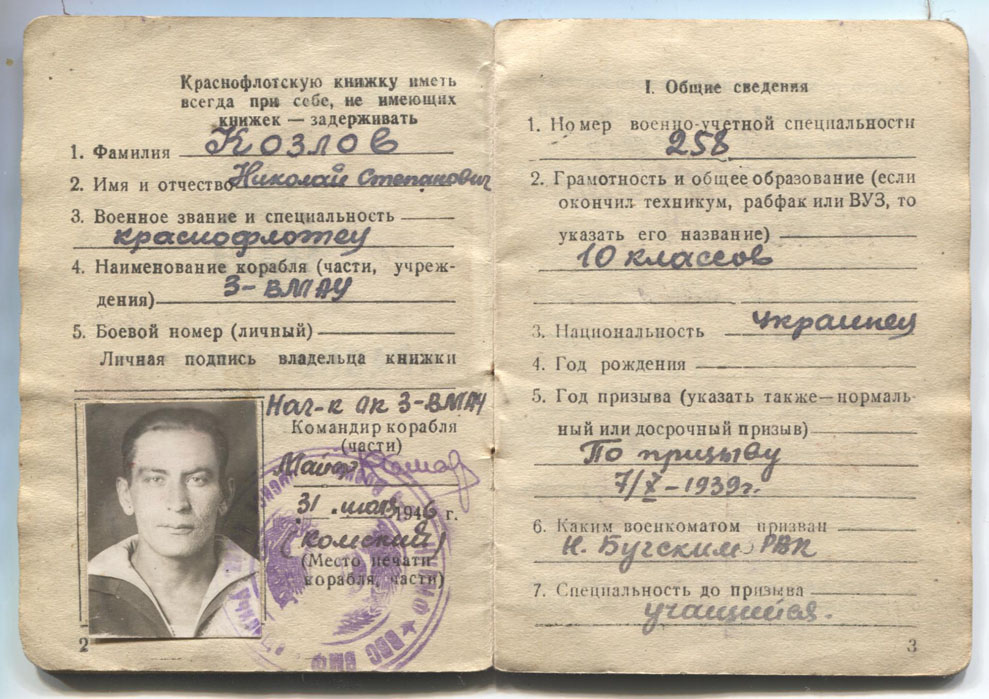 Краснофлотскую книжку иметь
всегда при себе, не имеющих
книжек — задерживать
1. Фамилия Козлов
2. Имя и отчество Николай Степанович
3. Военное звание и специальность
краснофлотец
4. Наименование корабля (части, учреж-
дения) 3-ВМАУ
5. Боевой номер (личный)
Личная подпись владельца книжки
Нач-к ОК 3-ВМАУ
Командир корабля
(части)
Майор
31 1946 г.
(Комский)
(Место печати
корабля, части)
ВВС ВМФ
2
I. Общие сведения
1. Номер военно-учетной специальности
258
2. Грамотность и общее образование (если
окончил техникум, рабфак или ВУЗ, то
указать его название)
10 классов
3. Национальность украинец
4. Год рождения
5. Год призыва (указать также — нормаль-
ный или досрочный призыв)
По призыву
7/X-1939г.
6. Каким военкоматом призван
Н. Бугским РВК
7. Специальность до призыва
учащийся.
3